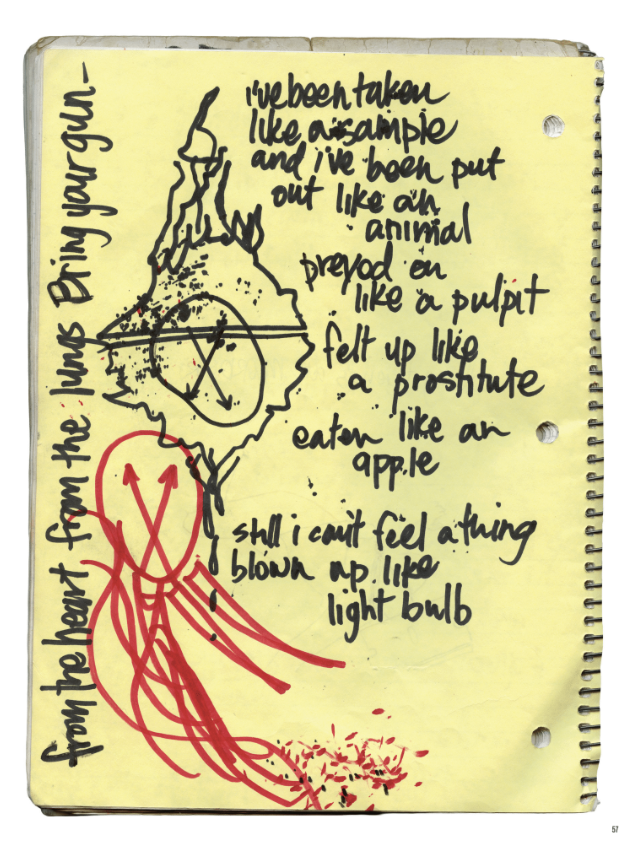 from the heart from the lungs Bring your gun-
i've been taken
like a sample
and i've been put
out like an
animal
preyod on
like a pulpit
felt up like
a prostitute
eaten like an
apple
still i can't feel a thing
blown up like
light bulb
57